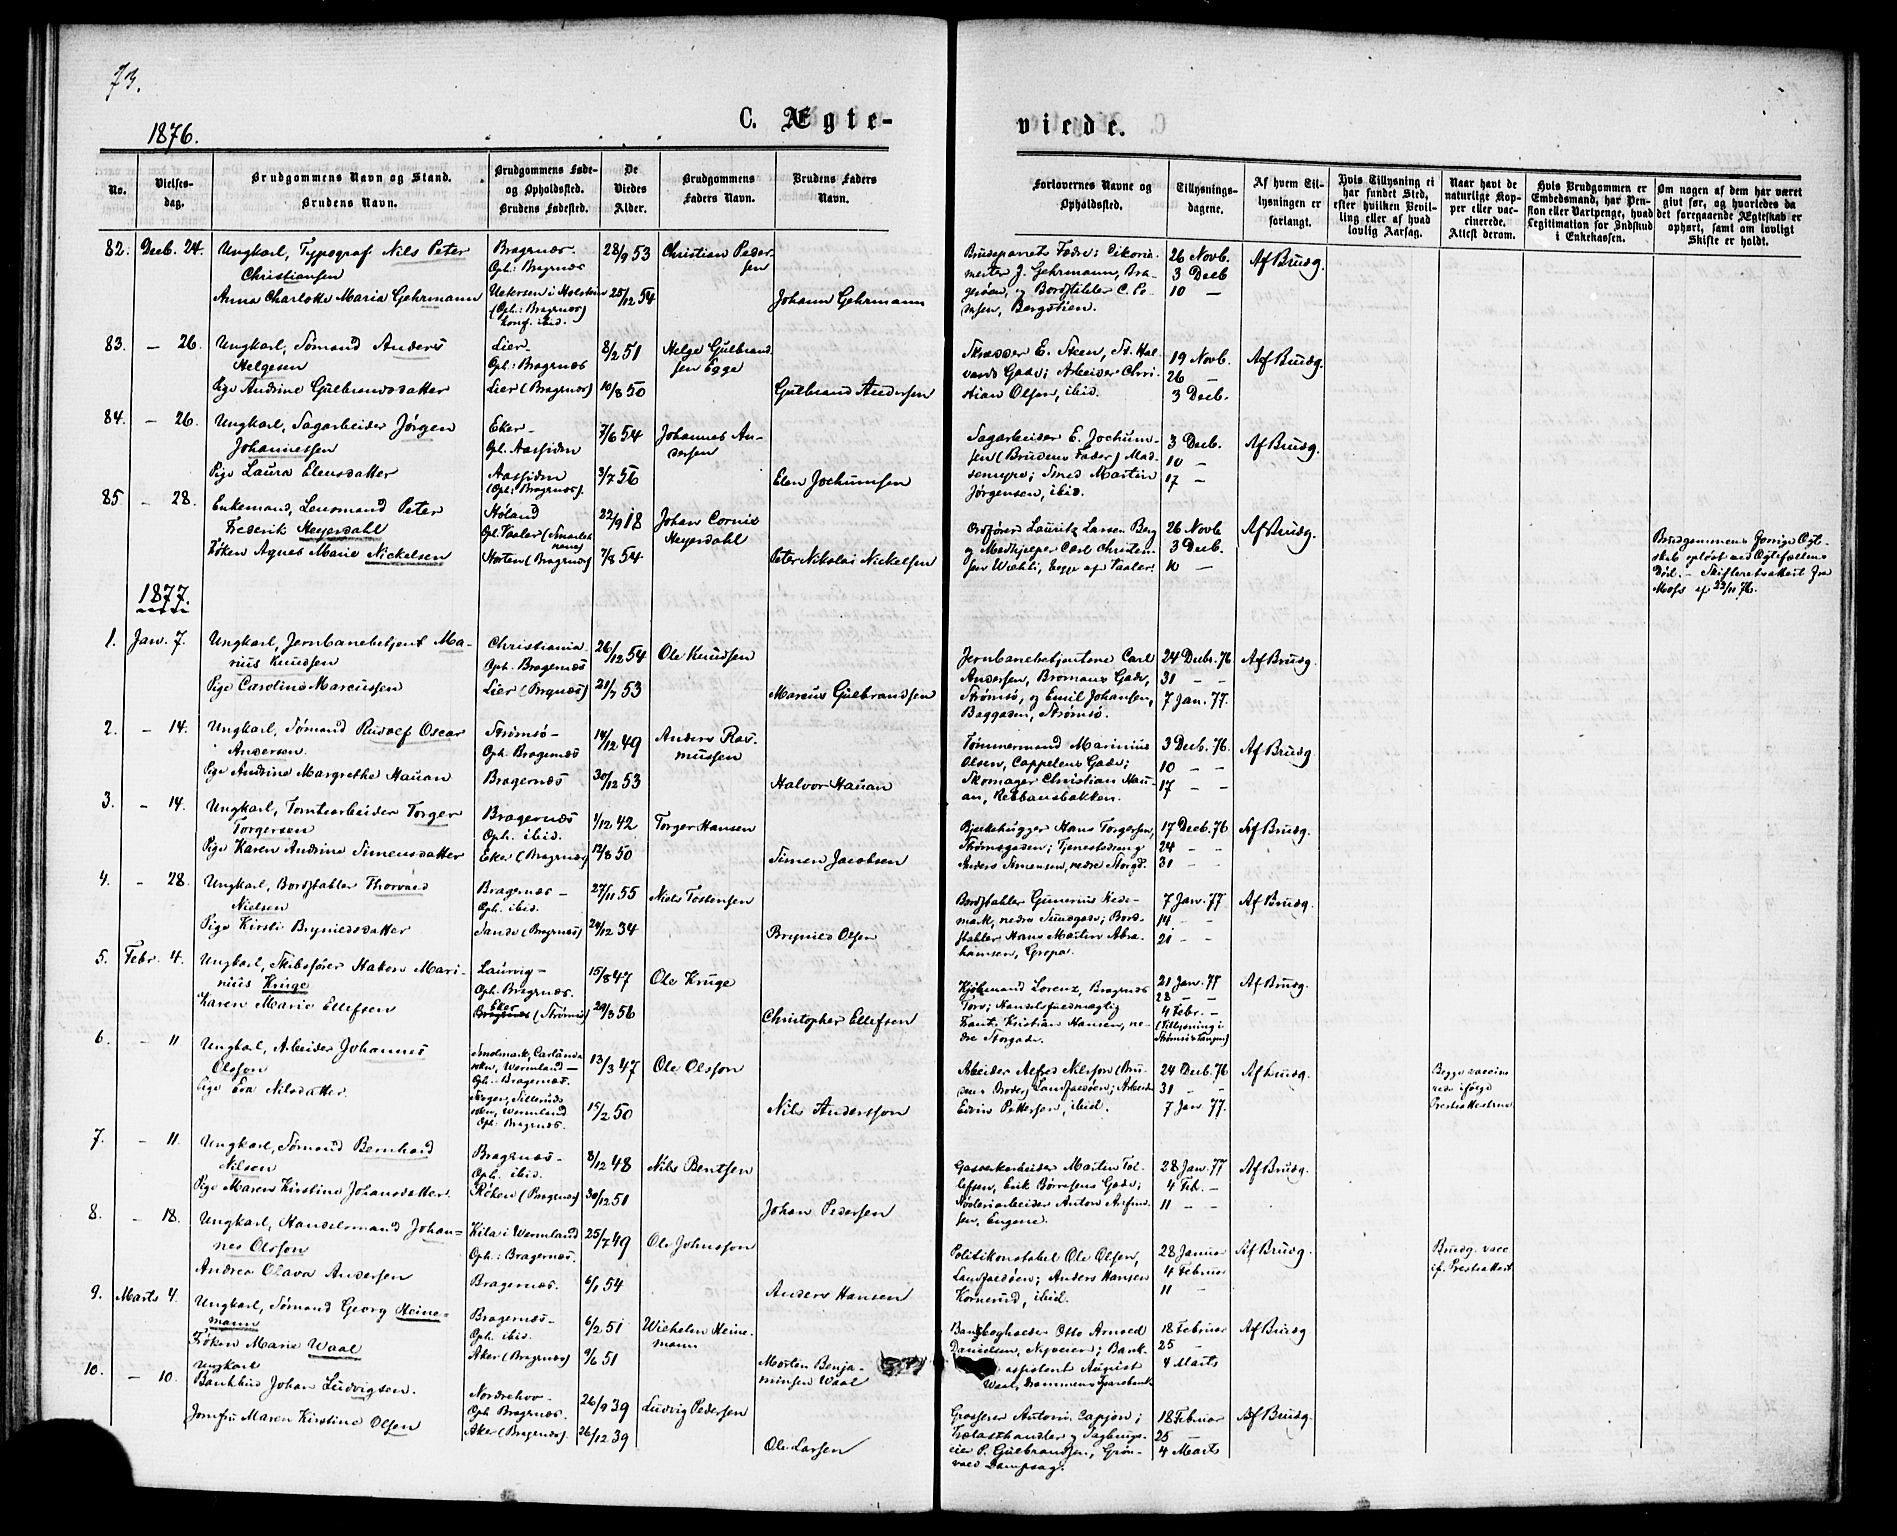 73.
1876.
C. Ægte-
viede.
No.
Vielses-
dag.
Brudgommens Navn og Stand.
Brudens Navn.
Brudgommens Føde-
og Opholdssted.
Brudens Fødested.
De
Viedes
Alder.
Brudgommens
Faders Navn.
Brudens Faders
Navn.
Forlovernes Navne og
Opholdssted.
Tillysnings-
dagene.
Af hvem Til-
lysningen er
forlangt.
Hvis Tillysning ei
har fundet Sted,
efter hvilken Bevil-
ling eller af hvad
lovlig Aarsag.
Naar havt de
naturlige Kop-
per eller vac-
cinerede.
Attest derom.
Hvis Brudgommen er
Embedsmand, har Pen-
sion eller Vartpenge, hvad
Legitimation for Indskud
i Enkekassen.
Om nogen af dem har været
givt før, og hvorledes da
det foregaaende Ægteskab er
ophørt, samt om lovligt
Skifte er holdt.
82. Decb. 24. Ungkarl, Typograf Nils Peter
Christiansen
Anna Charlotte Maria Gehrmann
Bragernæs.
Oph: Bragernæs
Uetersen i Holstein
(Oph: Bragernæs)
konf. ibid.
28/9 53
25/12 54
Christian Peder-
sen
Johann Gehrmann
Brudeparrets Fædre: Cikorie-
mester J. Gehrmann, Bra-
gerøen, og Bordstabler C. Pe-
dersen, Bergstien.
26 Novb.
3 Decb
10 —
Af Brudg.
83. — 26. Ungkarl, Sømand Anders
Helgesen
Pige Andrine Gulbrandsdatter
Lier
Oph: Bragernæs
Lier (Bragernæs)
8/2 51
10/8 50
Helge Gulbrand-
sen Egge
Gulbrand Andersen
E. Steen, St. Hal-
vards Gade; Arbeider Chri-
stian Olsen, ibid.
19 Novb.
26 —
3 Decb.
Af Brudg.
84. — 26. Ungkarl, Sagarbeider Jørgen
Johannessen
Pige Laura Elensdatter
Eker —
Oph. Aassiden
Aassiden
(Oph: Bragernæs).
7/6 54
3/7 56
Johannes An-
dersen
Elen Jochumsen
Sagarbeider E. Jochum-
sen (Brudens Fader) Mad-
senmyra; Smed Martin
Jørgensen, ibid.
3 Decb.
10 —
17 —
Af Brudg.
85 — 28. Enkemand, Lensmand Peter
Frederik Heyerdahl
Frøken Agnes Marie Nickelsen
Høland
Oph. Vaaler (Smaaleh-
nene)
Horten (Bragernæs)
22/9 18
7/8 54
Johan Cornix
Heyerdahl
Peter Nikolai Nickelsen
Ordfører Lauritz Larsen Berg
og Medhjelper Carl Christen-
sen Wæhli, begge af Vaaler.
26 Novb
3 Decb.
10 —
Af Brudg.
Brudgommens forrige Ægte-
skab opløst ved Ægtefællens
Død. — Skifteretsattest fra
Moss af 23/11 76.
1877.
1. Jan. 7. Ungkarl, Jernbanebetjent Ma-
rius Knudsen
Pige Caroline Marcussen
Christiania
Oph. Bragernæs
Lier (Bragernæs)
26/12 54
21/7 53
Ole Knudsen
Marcus Gulbrandsen
Jernbanebetjentene Carl
Andersen, Bromans Gade,
Strømsø, og Emil Johansen,
Baggaden, Strømsø.
24 Decb. 76
31 — —
7 Jan. 77.
Af Brudg.
2. — 14. Ungkarl, Sømand Rudolf Oscar
Andersen.
Pige Andrine Margrethe Hauan
Strømsø —
Oph. Bragernæs
Bragernæs
14/12 49
30/12 53
Anders Ras-
mussen
Halvor Hauan
Tømmermand Marinius
Olsen, Cappelens Gade;
Skomager Christian Hau-
an, Rebbansbakken.
3 Decb. 76.
10 — —
17 — —
Af Brudg.
3. — 14. Ungkarl, Tomtearbeider Torger
Torgersen
Pige Karen Andrine Simensdatter
Bragernæs
Oph. ibid.
Eker (Bragernæs)
1/12 42
12/8 50
Torger Hansen
Simen Jacobsen
Bjelkehugger Hans Torgersen,
Strømsgaden; Tjenestedreng
Anders Simensen, nedre Storgd.
17 Decb. 76
24 — —
31 — —
Af Brudg.
4. — 28. Ungkarl, Bordstabler Thorvald
Nielsen
Pige Kirsti Brynildsdatter
Bragernæs —
Oph. ibid.
Sande (Bragernæs)
27/11 55
24/12 34
Niels Tostensen
Brynild Olsen
Bordstabler Gunerius Hede-
mark, nedre Sundgade; Bord-
stabler Hans Martin Abra-
hamsen, Gropa.
7 Jan. 77
14 — —
21 — —
Af Brudg.
5. Febr. 4. Ungkarl, Skibsfører Hakon Mari-
nius Kruge
Karen Marie Ellefsen
Laurvig —
Oph. Bragernæs.
Eker
Bragernæs (Strømsø)
15/8 47
20/3 56
Ole Kruge
Christopher Ellefsen
Kjøbmand Lorenz, Bragernæs
Torv; Handelsfuldmægtig
Frantz Kristian Hansen, ne-
dre Storgade.
21 Jan. 77
28 — —
4 Febr. —
(Tillysning i
Strømsø & Tangen)
Af Brudg.
6. — 11 Ungkarl, Arbeider Johannes
Olsson
Pige Eva Nilsdatter.
Smolmark, Carlanda
soken, Wermland —
Oph. Bragernæs.
Sillerud
soken, Wermland
Oph. Bragernæs.
13/3 47
15/2 50
Ole Olsson
Nils Andersson
Arbeider Alfred Nilsson (Bru-
dens Broder) Landfaldøen; Arbeider
Edvin Pettersen, ibid.
24 Decb. 76
31 — —
7 Jan. 77.
Af Brudg.
Begge vaccine-
rede ifølge
Presteattesterne
7. — 11. Ungkarl, Sømand Bernhard
Nilsen
Pige Maren Kirstine Johansdatter.
Bragernæs —
Oph. ibid.
Røken (Bragernæs)
8/12 48
30/12 51
Nils Bentsen
Johan Pedersen
Gasverkarbeider Martin Tol-
lefsen, Erik Børresens Gade;
Støberiarbeider Anton Arfind-
sen, Engene.
28 Jan. 77
4 Feb. —
11 — —
Af Brudg.
8. — 18. Ungkarl, Handelsmand Johan-
nes Olsson
Andrea Olava Andersen
Kila i Wermland
Oph: Bragernæs.
Bragernæs.
25/7 49
6/1 54
Ole Johnsson
Anders Hansen
Politikonstabel Ole Olsen,
Landfaldøen; Anders Hansen
Kornerud, ibid.
28 Januar
4 Februar
11 —
Af Brudg.
Brudg. vacc.
if. Presteattest
9. Marts 4. Ungkarl, Sømand Georg Heine-
mann
Frøken Marie Waal
Bragernæs —
Oph. ibid.
Aker (Bragernæs)
6/2 51
9/6 51
Wilhelm Heine-
mann
Morten Benja-
minsen Waal
Bankbogholder Otto Arnold
Danielsen, Nyveien; Bank-
assistent August
Waal, Drammens Sparebank
18 Februar
25 —
4 Marts
Af Brudg
10. — 10. Ungkarl
Bankbud Johan Ludvigsen.
Jomfru Maren Kirstine Olsen
Norderhov —
Oph. Bragernæs.
Aker (Bragernæs)
26/9 39
26/12 39
Ludvig Pedersen
Ole Larsen
Grosserer Antoni Capjon;
Trælasthandler og Sagbrugs-
eier P. Gulbrandsen, Grøn-
vold Dampsag.
18 Februar
25 —
4 Marts
Af Brudg.